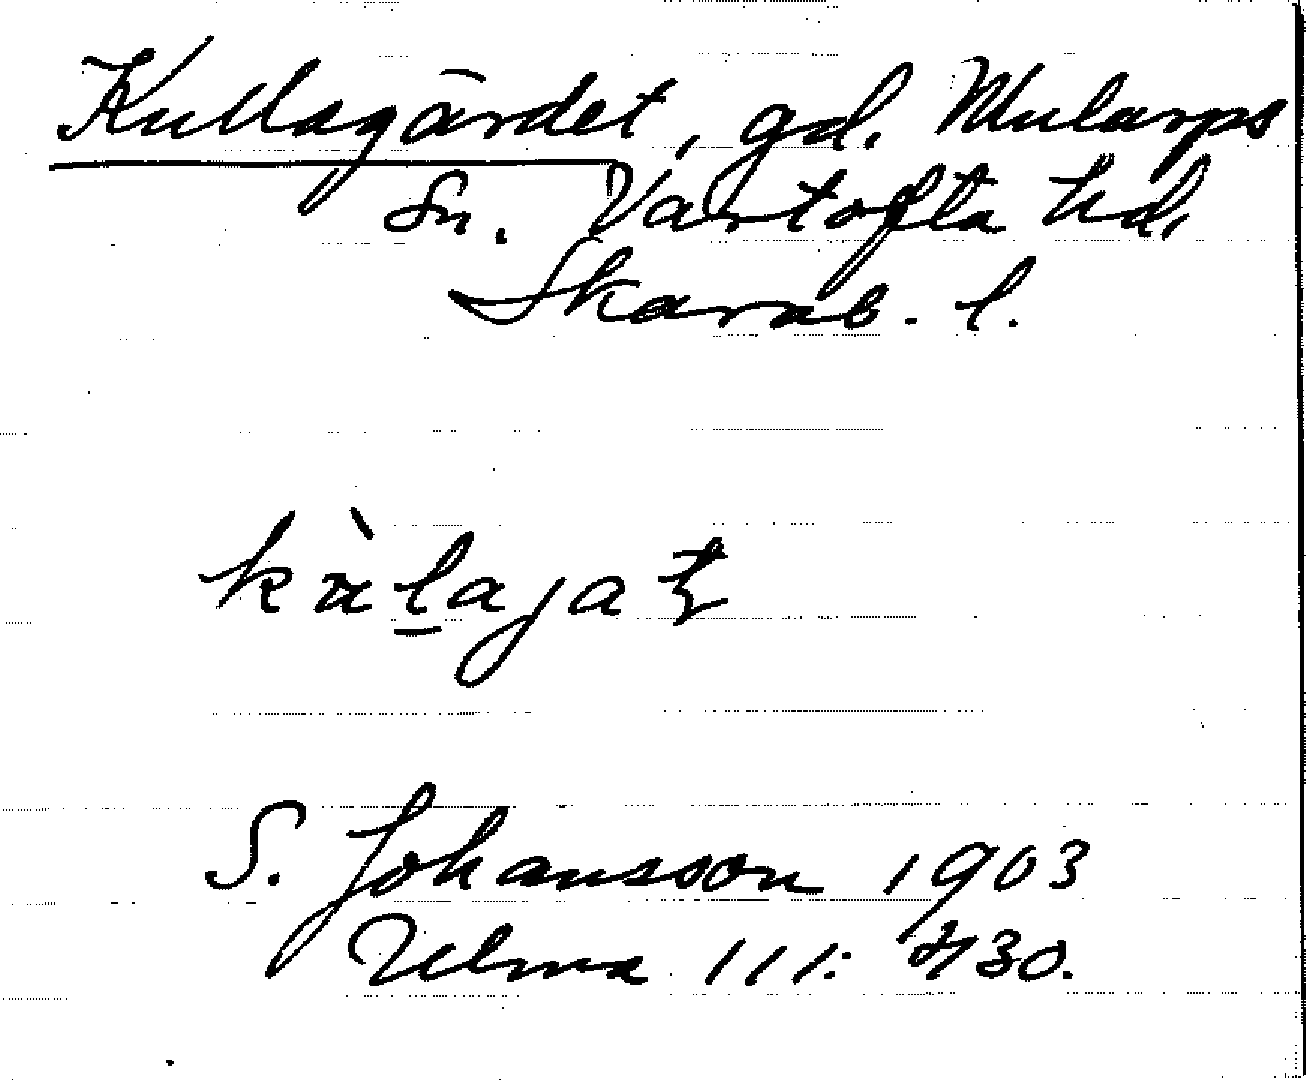 Kullagärdet, gd. Mularps
Sn. Vartofta hd,
Skarab. l.
kàlajat
S. Johansson 1903
Ulma 111: 430.